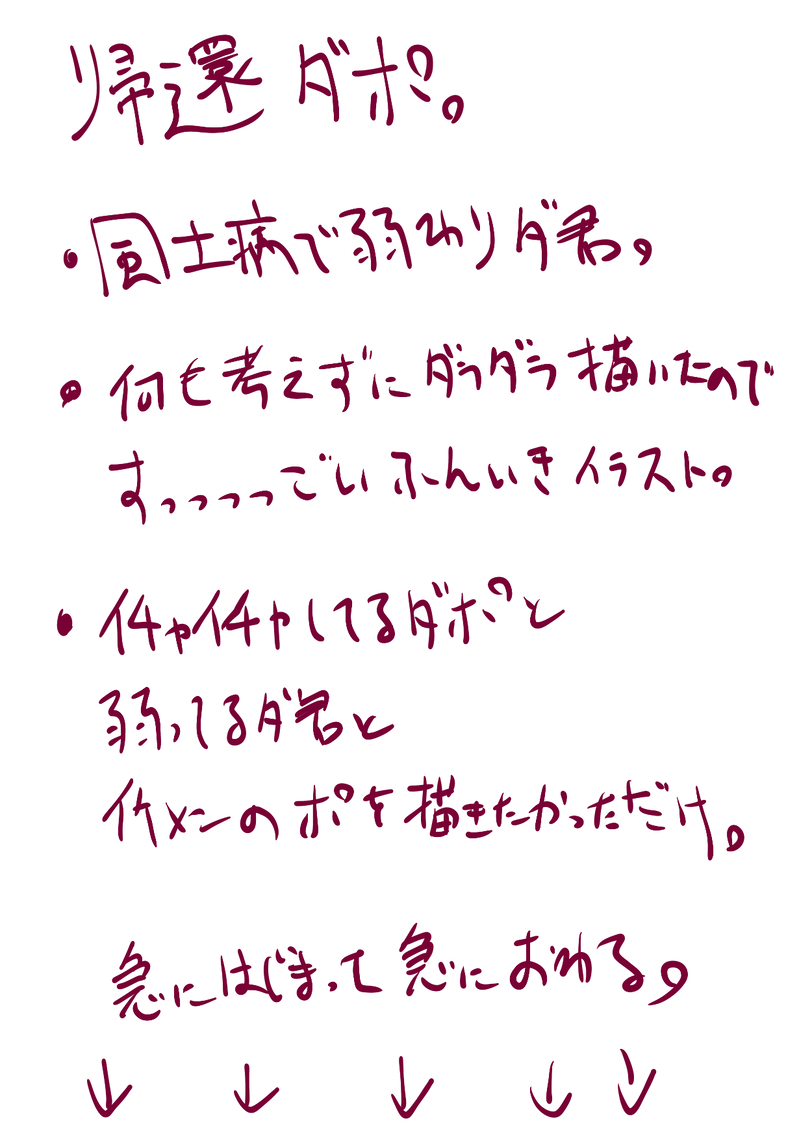 帰還ダポ。
・風土病で弱わりダ君。
・何も考えずにダラダラ描いたので
すっっっっごいふんいきイラスト。
・イチャイチャしてるダポと
弱ってるダ君と
イケメンのポを描きたかっただけ。
急にはじまって急におわる。
↓ ↓ ↓ ↓ ↓